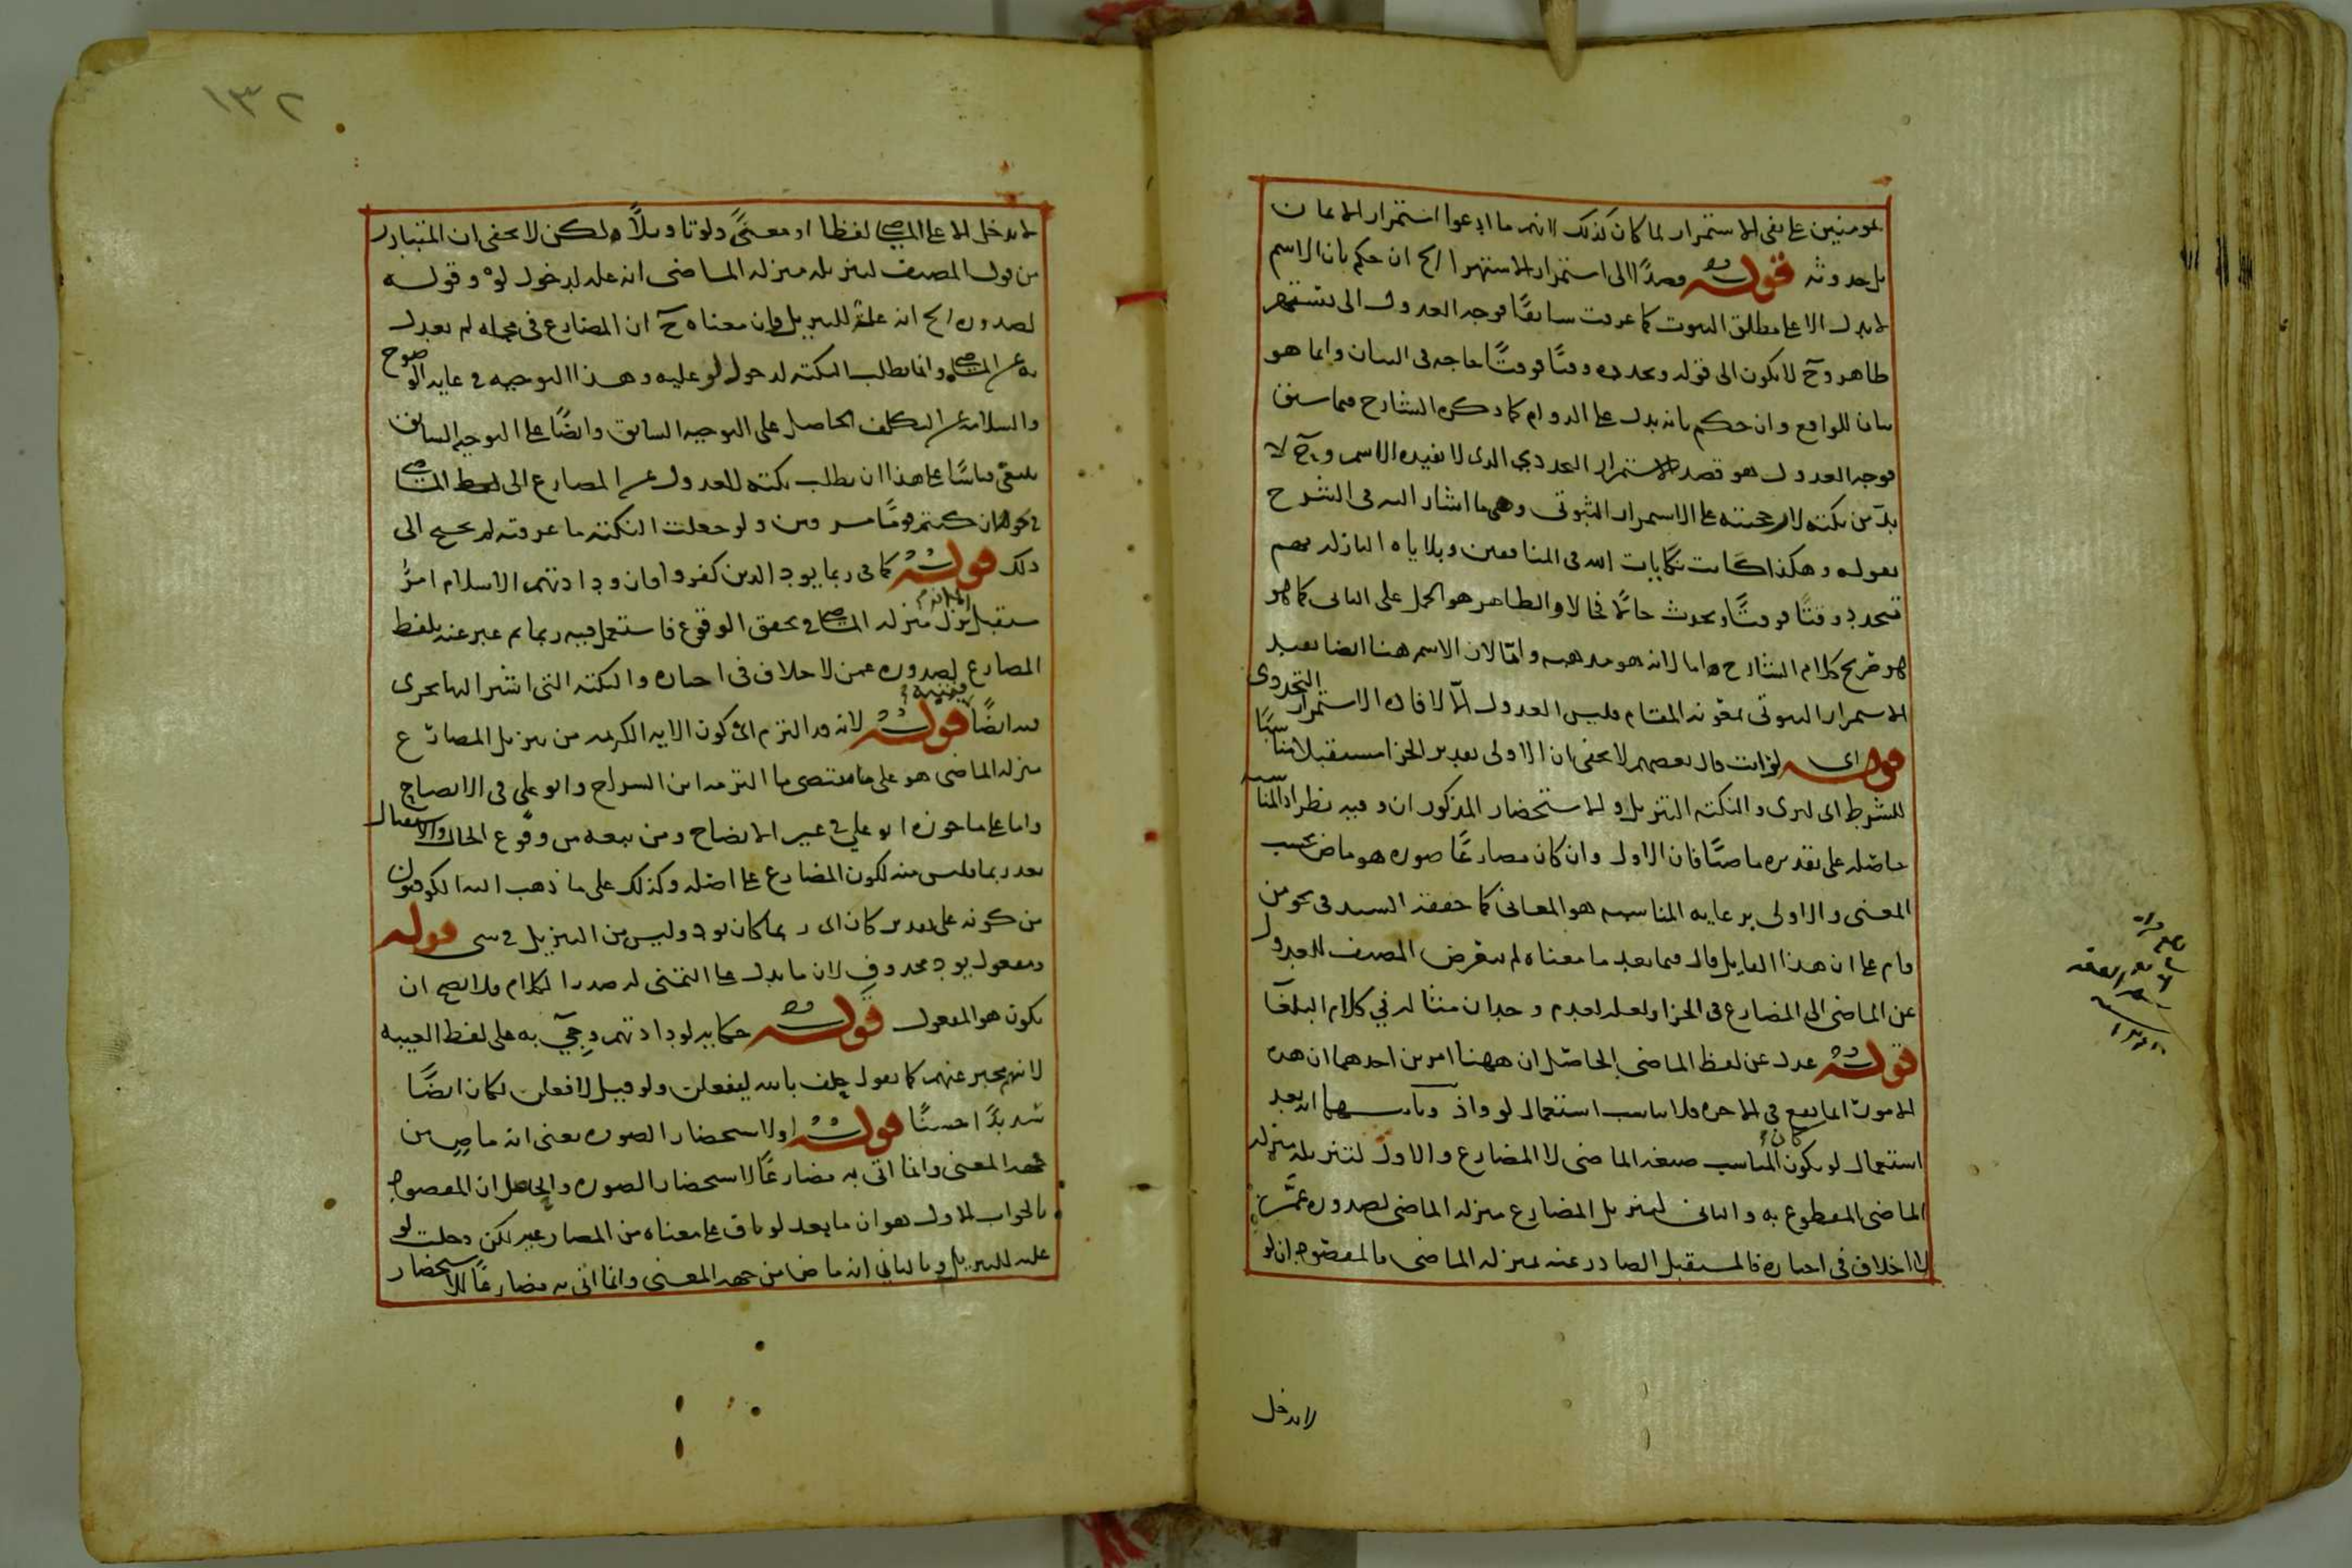 بمومنين على نفى الاستمرار لما كان كذلك لانهم ما ادعوا استمرار الايمان
بل حدوثه قوله قصدًا الى استمرار الاستهزا الخ ان حكم بان الاسم
لا يدل الا على مطلق الثبوت كما عرفت سابقًا فوجه العدول الى يستهز
ظاهر وح لا يكون الى قوله وتجدده وقتًا فوقتًا حاجه فى البيان وانما هو
بيان للواقع وان حكم بانه يدل على الدوام كما ذكره الشارح فيما سبق
فوجه العدول هو قصد الاستمرار التجددي الذى لا يفيده الاسم وح لا
بد من نكته لارجحيته على الاستمرار الثبوتى وهى ما اشار اليه فى الشرح
بقوله وهكذا كانت نكايات الله فى المنافقين وبلاياه النازله بهم
تتجدد وقتًا فوقتًا وتحدث حالًا فحالا والظاهر هو الحمل على الثانى كما هو
هو صريح كلام الشارح اما لانه هو مذهبه واما لان الاسم هنا ايضا يفيد
الاستمرار الثبوتى بمعونه المقام فليس العدول الا لافاده الاستمرار التجددى
قوله اى لرايت قال بعضهم لا يخفى ان الاولى تقدير الجزا مستقبلا مناسبًا
للشرط اى لترى والنكته التنزيل والاستحضار المذكوران وفيه نظر اذ المناسبه
حاصله على تقديره ماضيًا فان الاول وان كان مضارعًا صوره هو ماض بحسب
المعنى والاولى برعايه المناسبه هو المعانى كما حققه السيد فى نحو من
قام على ان هذا القايل قال فيما بعد ما معناه لم يتعرض المصنف للعدول
عن الماضى الى المضارع فى الجزا ولعله لعدم وجدان مثاله في كلام البلغآ
قوله عدل عن لفظ الماضى الحاصل ان ههنا امرين احدهما ان هذه
الامور انما تقع فى الاخره فلا يناسب استعمال لو واذ وثانيهما انه بعد
استعمال لو يكون المناسب كان صيغه الماضى لا المضارع والاول لتنزيله منزله
الماضى المقطوع به والثانى لتنزيل المضارع منزله الماضى لصدوره عمن
لا خلاف فى اخباره فالمستقبل الصادر عنه بمنزله الماضى فالمقصود ان لو
لا يدخل
١٣٢
لا يدخل الا على الماضى لفظا او معنًى ولو تاويلًا ولكن لا يخفى ان المتبادر
من قول المصنف لتنزيله منزله الماضى انه عله لدخول لو وقوله
لصدوره الخ انه علة للتنزيل وان معناه ح ان المضارع فى محله لم يعدل
به عن الماضى وانما يطلب النكته لدخول لو عليه وهذا التوجيه فى غايه الوضوح
والسلامه عن التكلف الحاصل على التوجيه السابق وايضًا على التوجيه السابق
ينبغى قياسًا على هذا ان يطلب نكته للعدول عن المضارع الى لفظ الماضى
فى نحو ان كنتم قومًا مسرفين ولو جعلت النكته ما عرفته لم يحتج الى
ذلك قوله كما فى ربما يود الذين كفروا فان ودادتهم الاسلام امر
مستقبل نزل منزله الماضى فى تحقق الوقوع فاستعمل فيه ربما ثم عبر عنه بلفظ
المضارع لصدوره عمن لا خلاف فى اخباره والنكته التى اشير اليها يجرى
فيه ايضًا قوله لانه قد التزم اى كون الايه الكريمه من تنزيل المضارع
منزله الماضى هو على ما مقتضى ما التزمه ابن السراج وابو على فى الايضاح
واما على ما جوزه ابو علي فى غير الايضاح ومن تبعه من وقوع الحال والاستقبال
بعد ربما فليس منه لكون المضارع على اصله وكذلك على ما ذهب اليه الكوفيون
من كونه على تقدير كان اى ربما كان يود وليس من التنزيل فى شى قوله
ومفعول يود محذوف لان ما يدل على التمنى له صدر الكلام فلا يصح ان
يكون هو المفعول قوله حكايه لودادتهم وجئ به على لفظ الغيبه
لانهم مخبر عنهم كما تقول حلف بالله ليفعلن ولو قيل لافعلن لكان ايضًا
سديدًا حسنًا قوله او لاستحضار الصوره يعنى انه ماض من
جهه المعنى وانما اتى به مضارعًا لاستحضار الصوره والحاصل ان المقصود
بالجواب الاول هو ان ما بعد لو باق على معناه من المضارعيه لكن دخلت لو
عليه للتنزيل وبالثاني انه ماض من جهه المعنى وانما اتى به مضارعًا للاستحضار